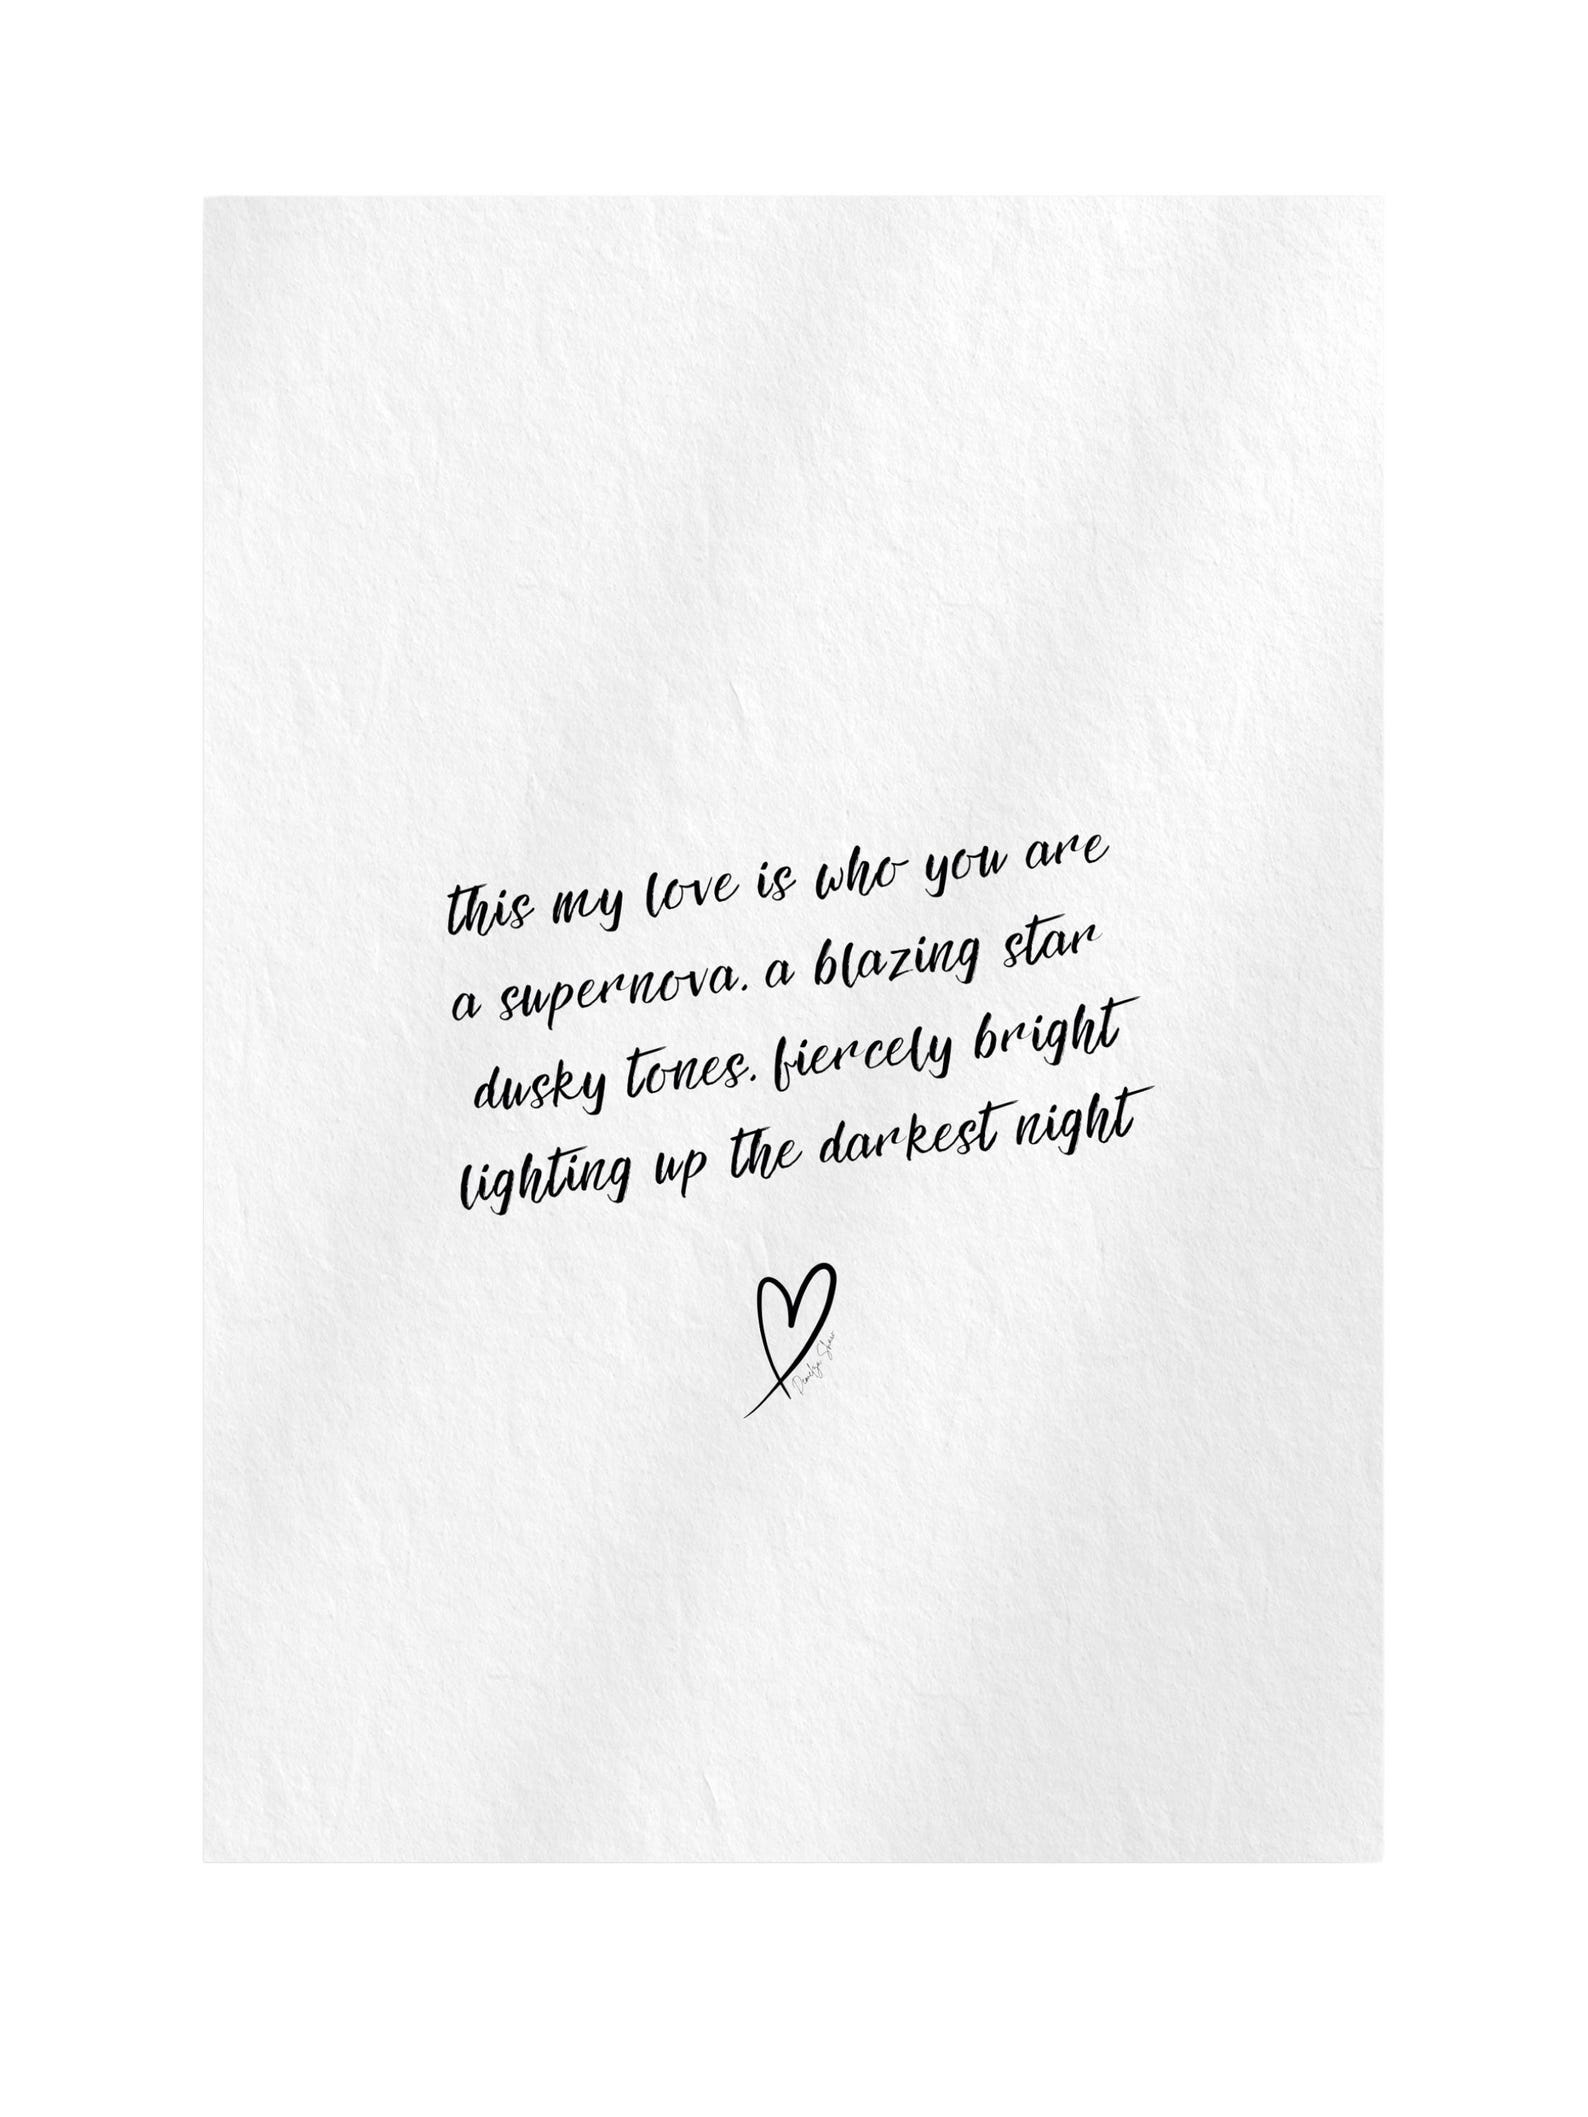 this my love is who you are
a supernova. a blazing star
dusky tones. fiercely bright
lighting up the darkest night